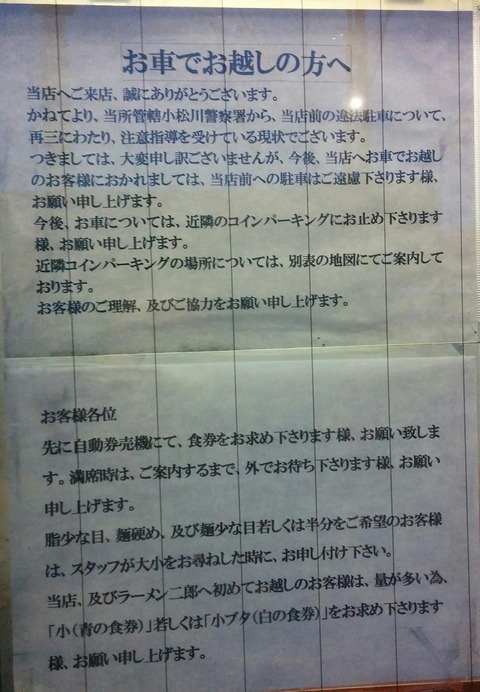 お車でお越しの方へ
当店へご来店、誠にありがとうございます。
かねてより、当所管轄小松川警察署から、当店前の違法駐車について、
再三にわたり、注意指導を受けている現状でございます。
つきましては、大変申し訳ございませんが、今後、当店へお車でお越し
のお客様におかれましては、当店前への駐車はご遠慮下さります様、
お願い申し上げます。
今後、お車については、近隣のコインパーキングにお止め下さります
様、お願い申し上げます。
近隣コインパーキングの場所については、別表の地図にてご案内して
おります。
お客様のご理解、及びご協力をお願い申し上げます。
お客様各位
先に自動券売機にて、食券をお求め下さります様、お願い致しま
す。満席時は、ご案内するまで、外でお待ち下さります様、お願い
申し上げます。
脂少な目、麺硬め、及び麺少な目若しくは半分をご希望のお客様
は、スタッフが大小をお尋ねした時に、お申し付け下さい。
当店、及びラーメン二郎へ初めてお越しのお客様は、量が多い為、
「小(青の食券)」若しくは「小ブタ(白の食券)」をお求め下さります
様、お願い申し上げます。